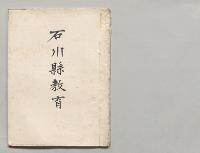 石川縣教育